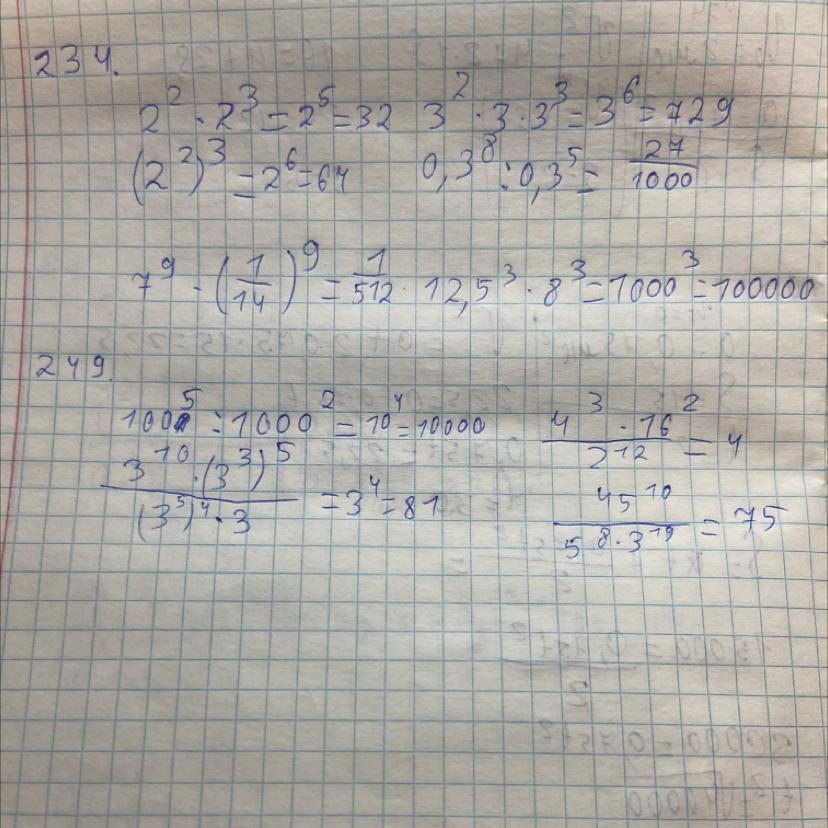 234.
2² · 2³ = 2⁵ = 32 3² · 3 · 3³ = 3⁶ = 729
(2²)³ = 2⁶ = 64 0,3⁸ : 0,3⁵ = 27/1000
7⁹ · (1/14)⁹ = 1/512 · 12,5³ · 8³ = 1000³ = 100000
249.
100⁵ : 1000² = 10⁴ = 10000 4³ · 16² / 2¹² = 4
3¹⁰ · (3³)⁵ / (3⁵)⁴ · 3 = 3⁴ = 81 45¹⁰ / 5⁸ · 3¹⁹ = 75